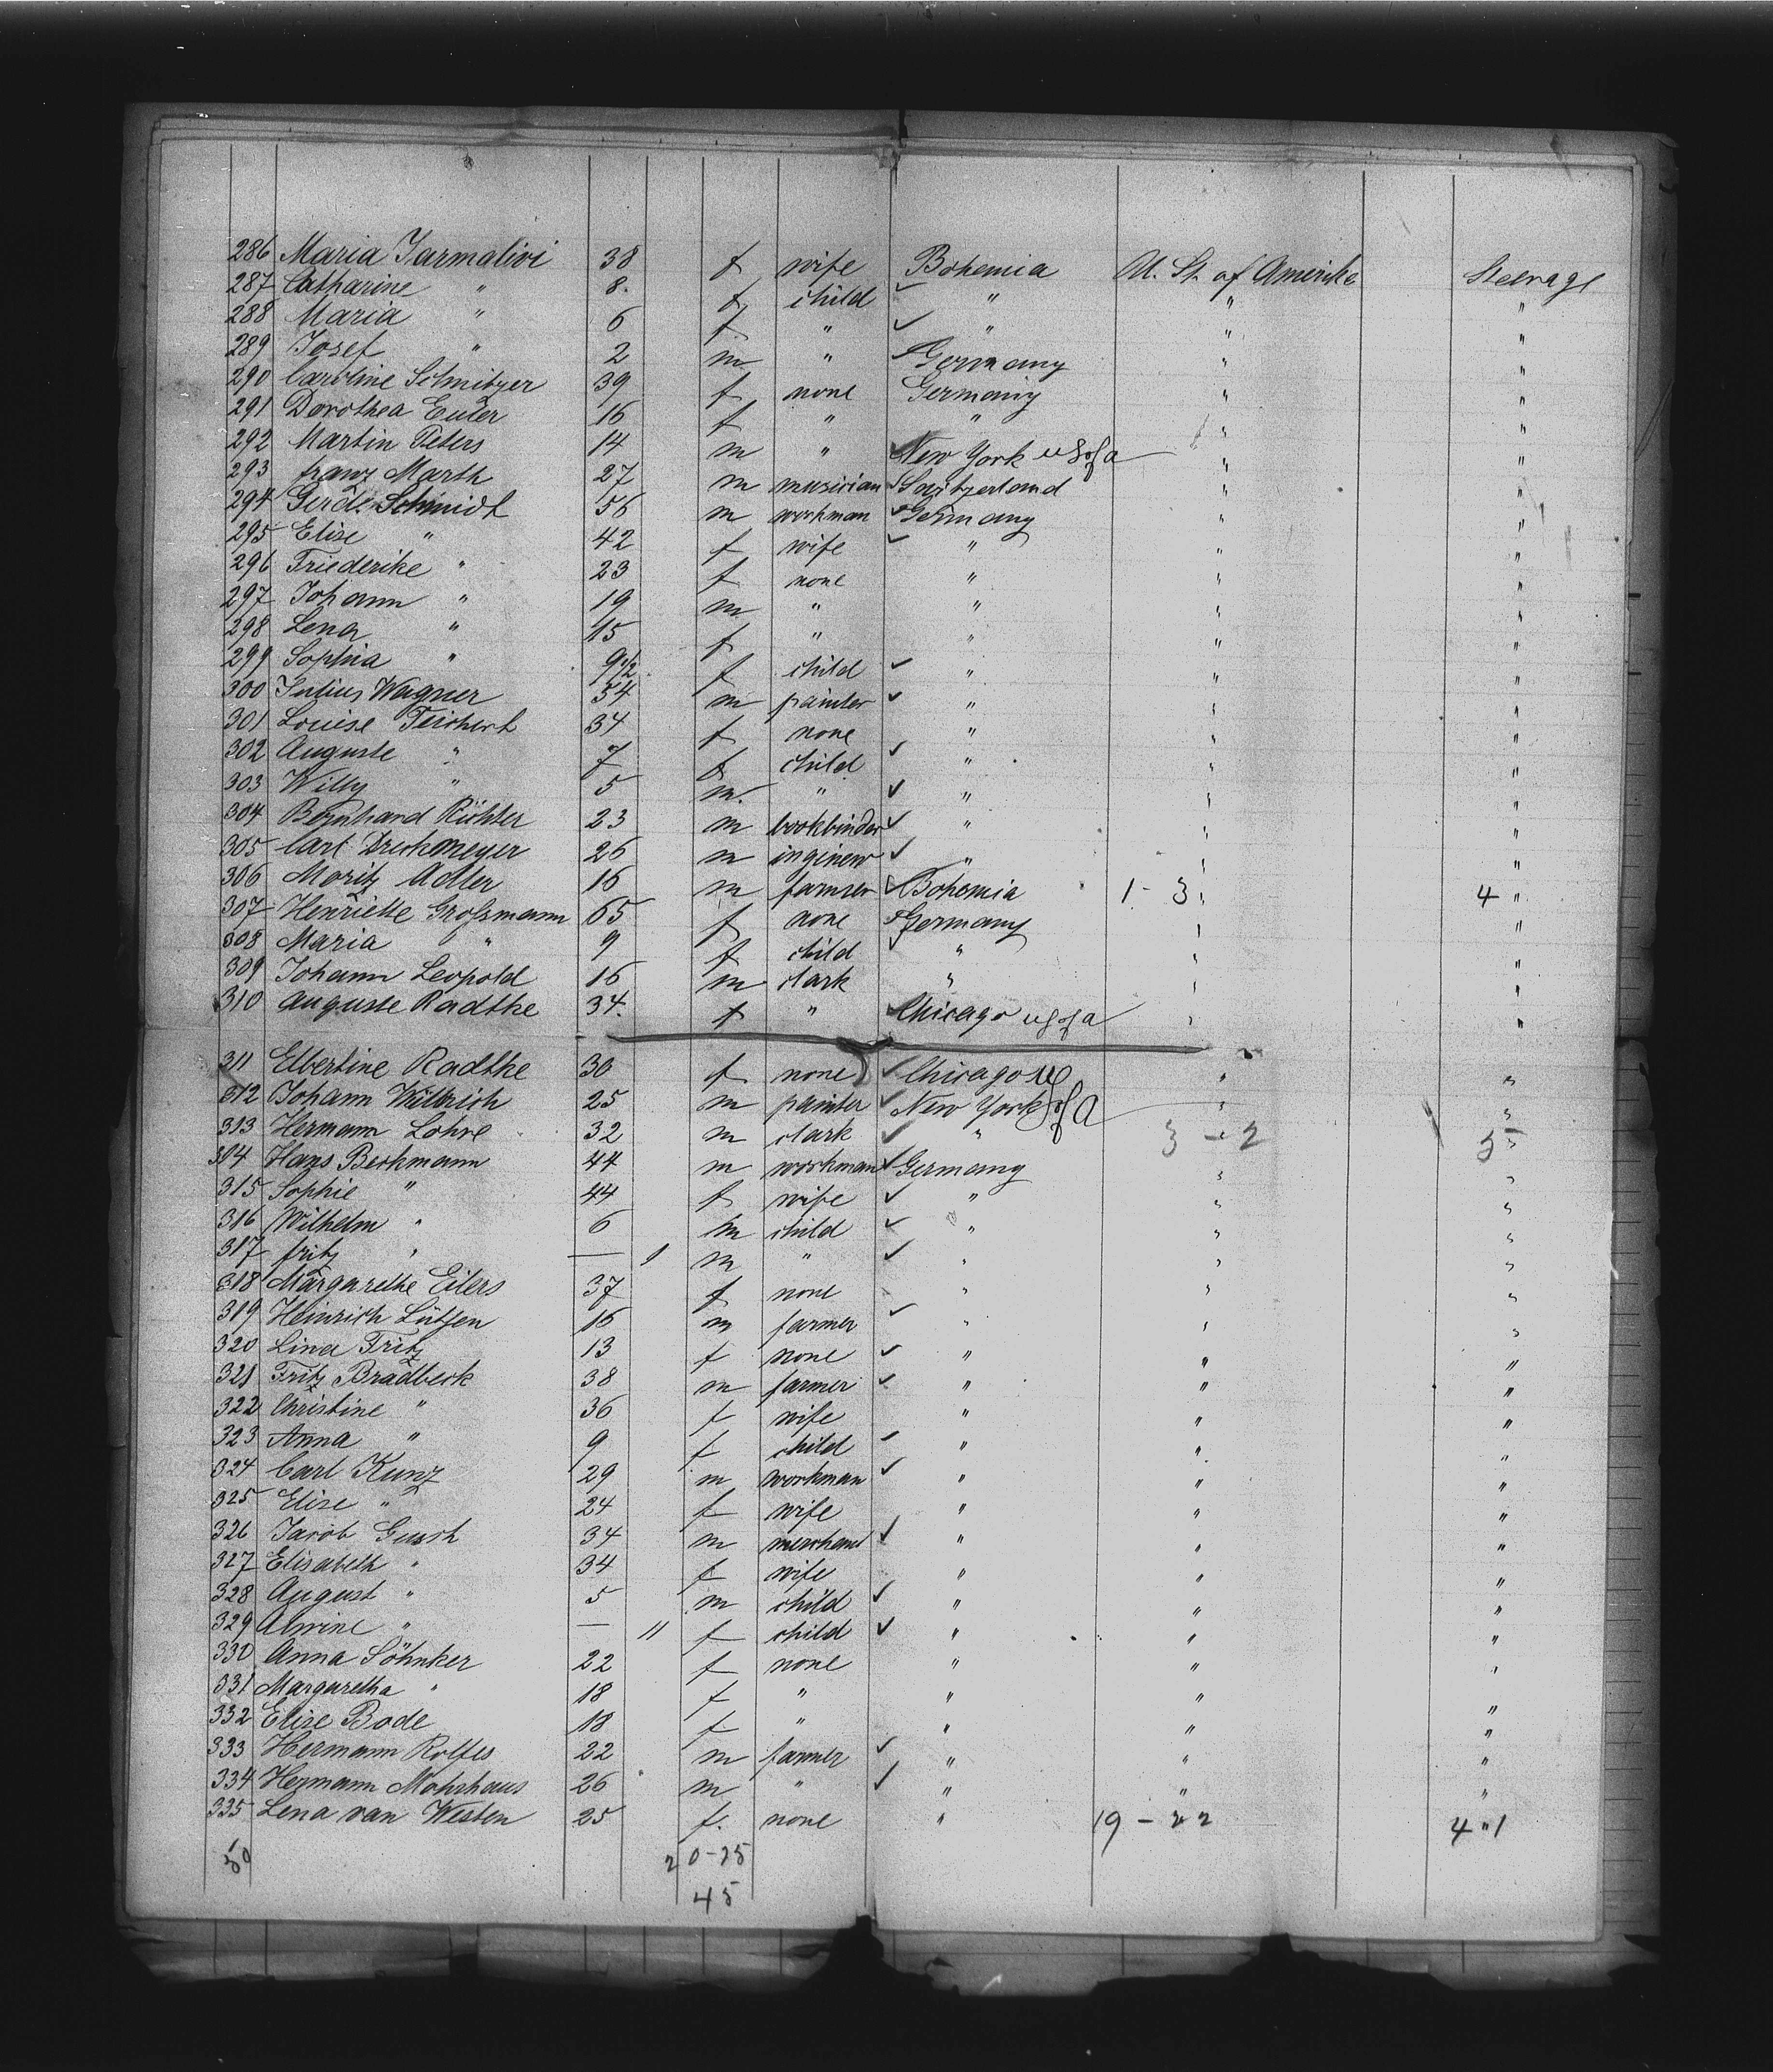 286 Maria Jarmalivi 38 f wife Bohemia U. St. of Amerika Steerage
287 Catharine " 8. f child ✓ " " "
288 Maria " 6 f " ✓ " " "
289 Josef " 2 m " ✓ Germany " "
290 Caroline Schnitzer 39 f none Germany " "
291 Dorothea Euler 16 f " " " "
292 Martin Peters 14 m " ✓ New York USofA " "
293 Franz Marth 27 m musician ✓ Switzerland " "
294 Gerd. Schmidt 56 m workman ✓ Germany " "
295 Elise " 42 f wife ✓ " " "
296 Friederike " 23 f none " " "
297 Johann " 19 m " " " "
298 Lena " 15 f " " " "
299 Sophia " 9 1/2 f child ✓ " " "
300 Julius Wagner 54 m painter ✓ " " "
301 Louise Teichert 34 f none " " "
302 Auguste " 7 f child ✓ " " "
303 Willy " 5 m. " ✓ " " "
304 Bernhard Richter 23 m bookbinder ✓ " " "
305 Carl Druckmeyer 26 m inginew ✓ " " "
306 Moritz Adler 16 m farmer ✓ Bohemia 1 - 3 " 4 "
307 Henriette Großmann 65 f none ✓ Germany " "
308 Maria " 9 f child ✓ " " "
309 Johann Leopold 16 m clark " " "
310 Auguste Radtke 34. f " ✓ Chicago USofA " "
311 Elbertine Radtke 30 f none ✓ Chicago U " "
312 Johann Wittrich 25 m painter ✓ New York SofA " "
313 Hermann Lohre 32 m clark ✓ " 3 - 2 5 "
314 Hans Beckmann 44 m workman ✓ Germany " "
315 Sophie " 44 f wife ✓ " " "
316 Wilhelm " 6 m child ✓ " " "
317 Fritz " — 9 m " ✓ " " "
318 Margarethe Eilers 37 f none " " "
319 Heinrich Lütjen 16 m farmer ✓ " " "
320 Lina Fritz 13 f none ✓ " " "
321 Fritz Bradbeck 38 m farmer ✓ " " "
322 Christine " 36 f wife " " "
323 Anna " 9 f child ✓ " " "
324 Carl Kunz 29 m workman ✓ " " "
325 Elise " 24 f wife " " "
326 Jacob Gush 34 m merchand ✓ " " "
327 Elisabeth " 34 f wife " " "
328 August " 5 m child ✓ " " "
329 Alwine " — 11 f child ✓ " " "
330 Anna Söhnker 22 f none " " "
331 Margaretha " 18 f " " " "
332 Elise Bode 18 f " " " "
333 Hermann Rolfes 22 m farmer ✓ " " "
334 Hermann Mohrhaus 26 m " ✓ " " "
335 Lena van Westen 25 f. none " 19 - 22 4 " 1
50 20-25
45